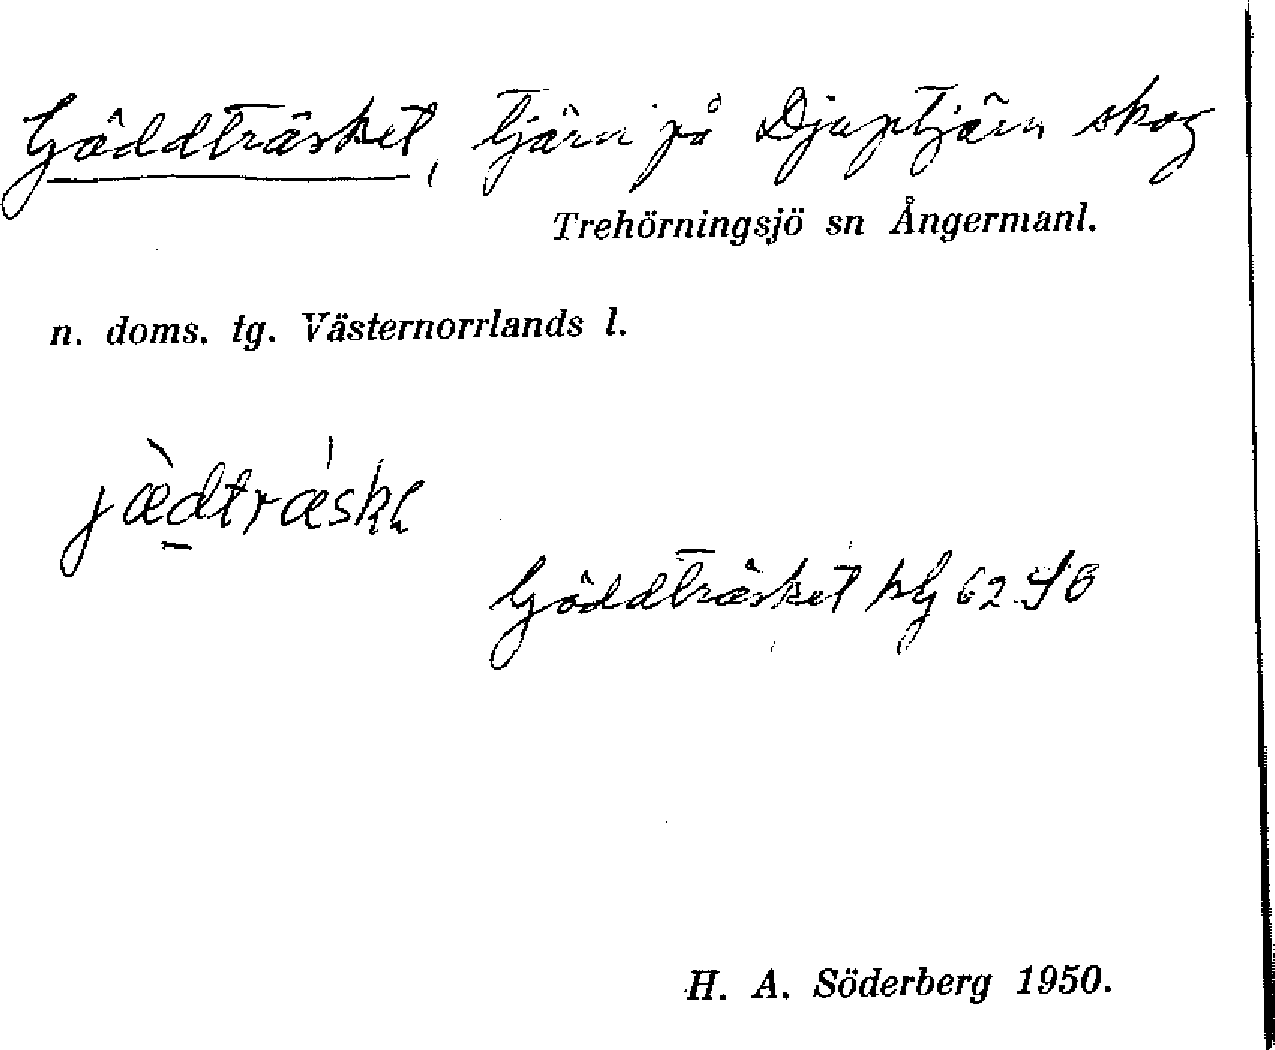 Gäddträsket, tjärn på Djuptjärn skog
Trehörningsjö sn Ångermanl.
n. doms. tg. Västernorrlands l.
jæ̀dtræ̍skɩ
Gäddträsket kbl 62 SO
H. A. Söderberg 1950.